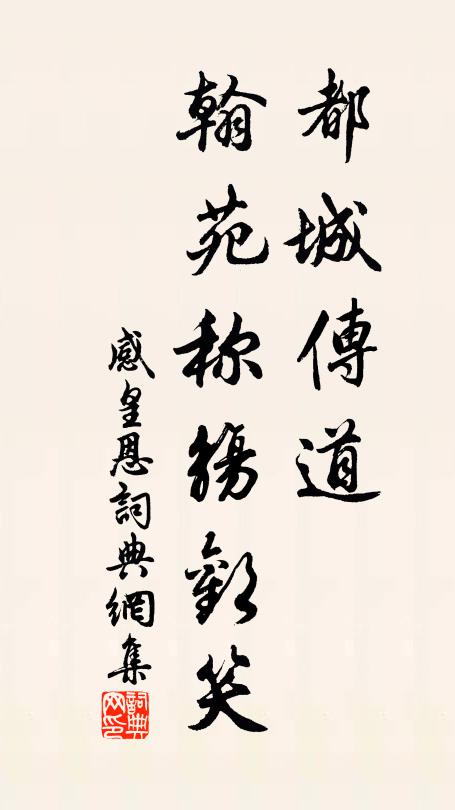 都城傳道
翰苑称觴歡笑
感皇恩詞典網集
詞典
网印